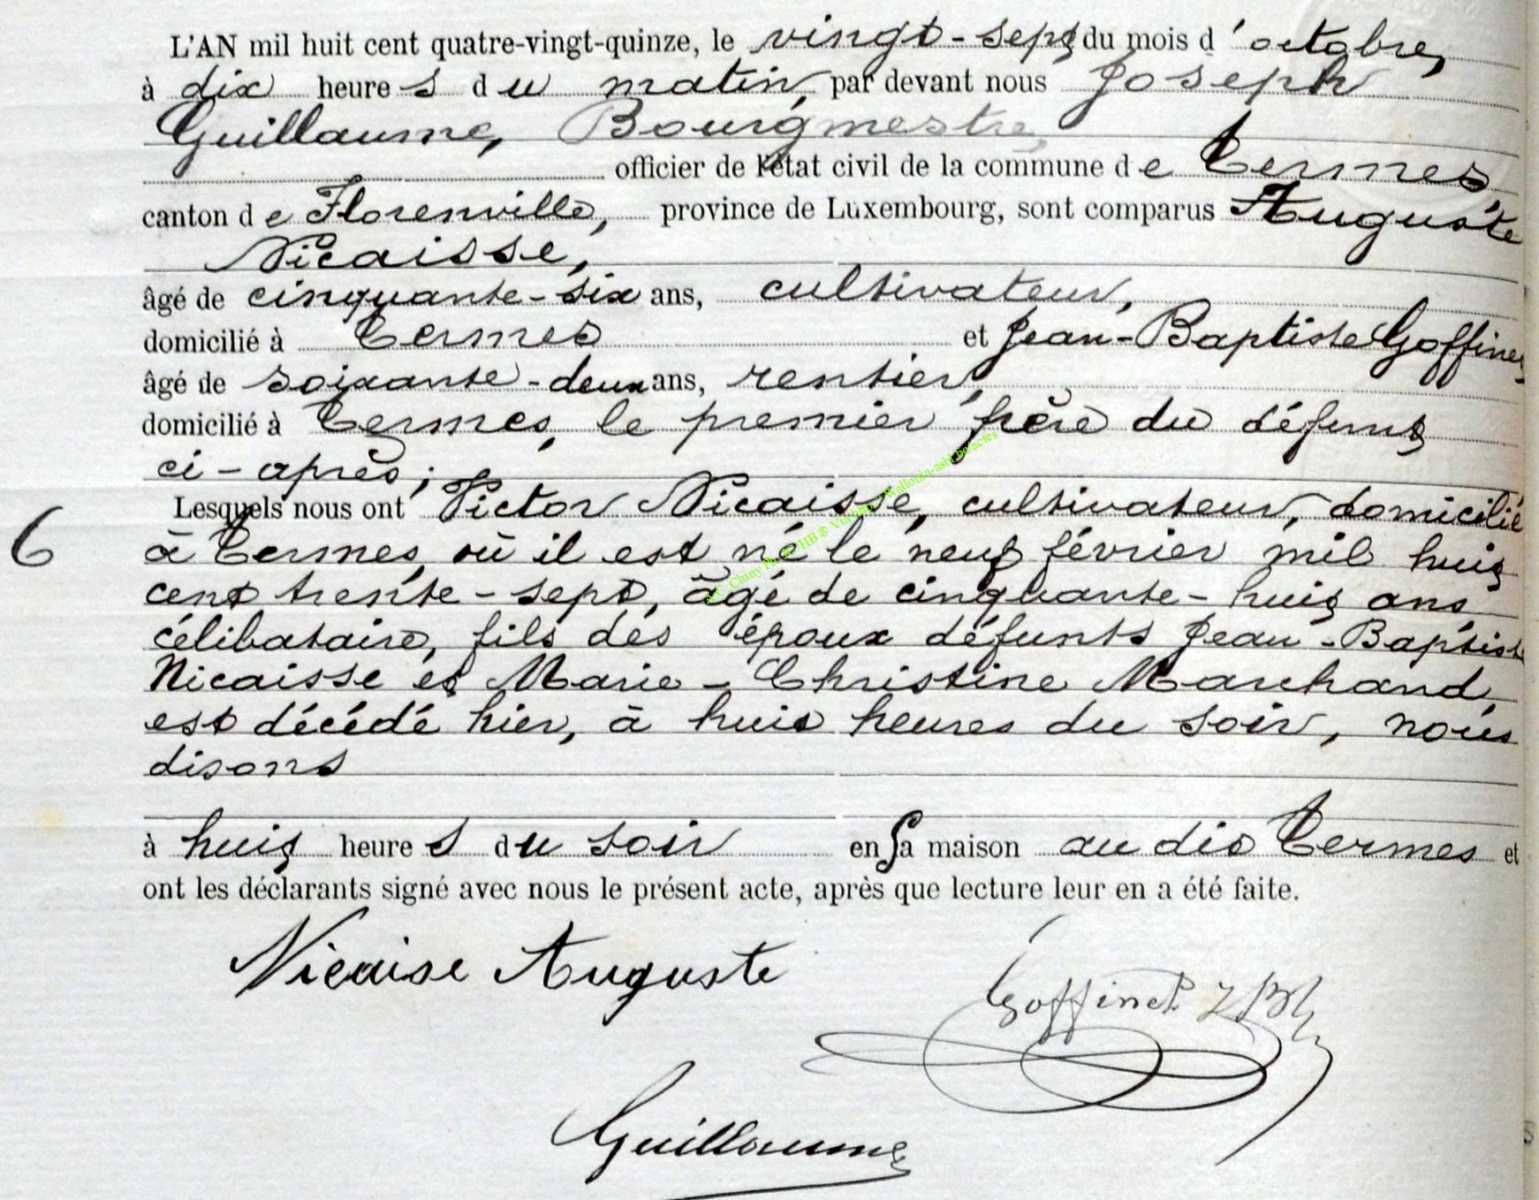 L'AN mil huit cent quatre-vingt-quinze, le vingt-sept du mois d'octobre,
à dix heures du matin, par devant nous Joseph
Guillaume, Bourgmestre,
officier de l'état civil de la commune de Termes,
canton de Florenville, province de Luxembourg, sont comparus Auguste
Nicaisse,
âgé de cinquante-six ans, cultivateur,
domicilié à Termes et Jean-Baptiste Goffinet,
âgé de soixante-deux ans, rentier,
domicilié à Termes, le premier frère du défunt
ci-après;
Lesquels nous ont Victor Nicaisse, cultivateur, domicilié
6 à Termes, où il est né le neuf février mil huit
cent trente-sept, âgé de cinquante-huit ans,
célibataire, fils des époux défunts Jean-Baptiste
Nicaisse et Marie-Christine Marchand,
est décédé hier, à huit heures du soir, nous
disons
à huit heures du soir en sa maison au dit Termes et
ont les déclarants signé avec nous le présent acte, après que lecture leur en a été faite.
Nicaise Auguste
Goffinet JB
Guillaume